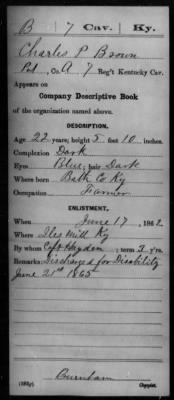 B 7 Cav. Ky.
Charles P Brown
Pvt, Co. A 7 Reg't Kentucky Cav.
Appears on
Company Descriptive Book
of the organization named above.
DESCRIPTION.
Age 22 years; height 5 feet 10 inches.
Complexion Dark
Eyes Blue; hair Dark
Where born Bath Co Ky
Occupation Farmer
ENLISTMENT.
When June 17, 1862
Where Iles Mill Ky
By whom Capt Hayden; term 3 y'rs.
Remarks: Discharged for Disability
June 21st 1865
Burnham
Copyist.